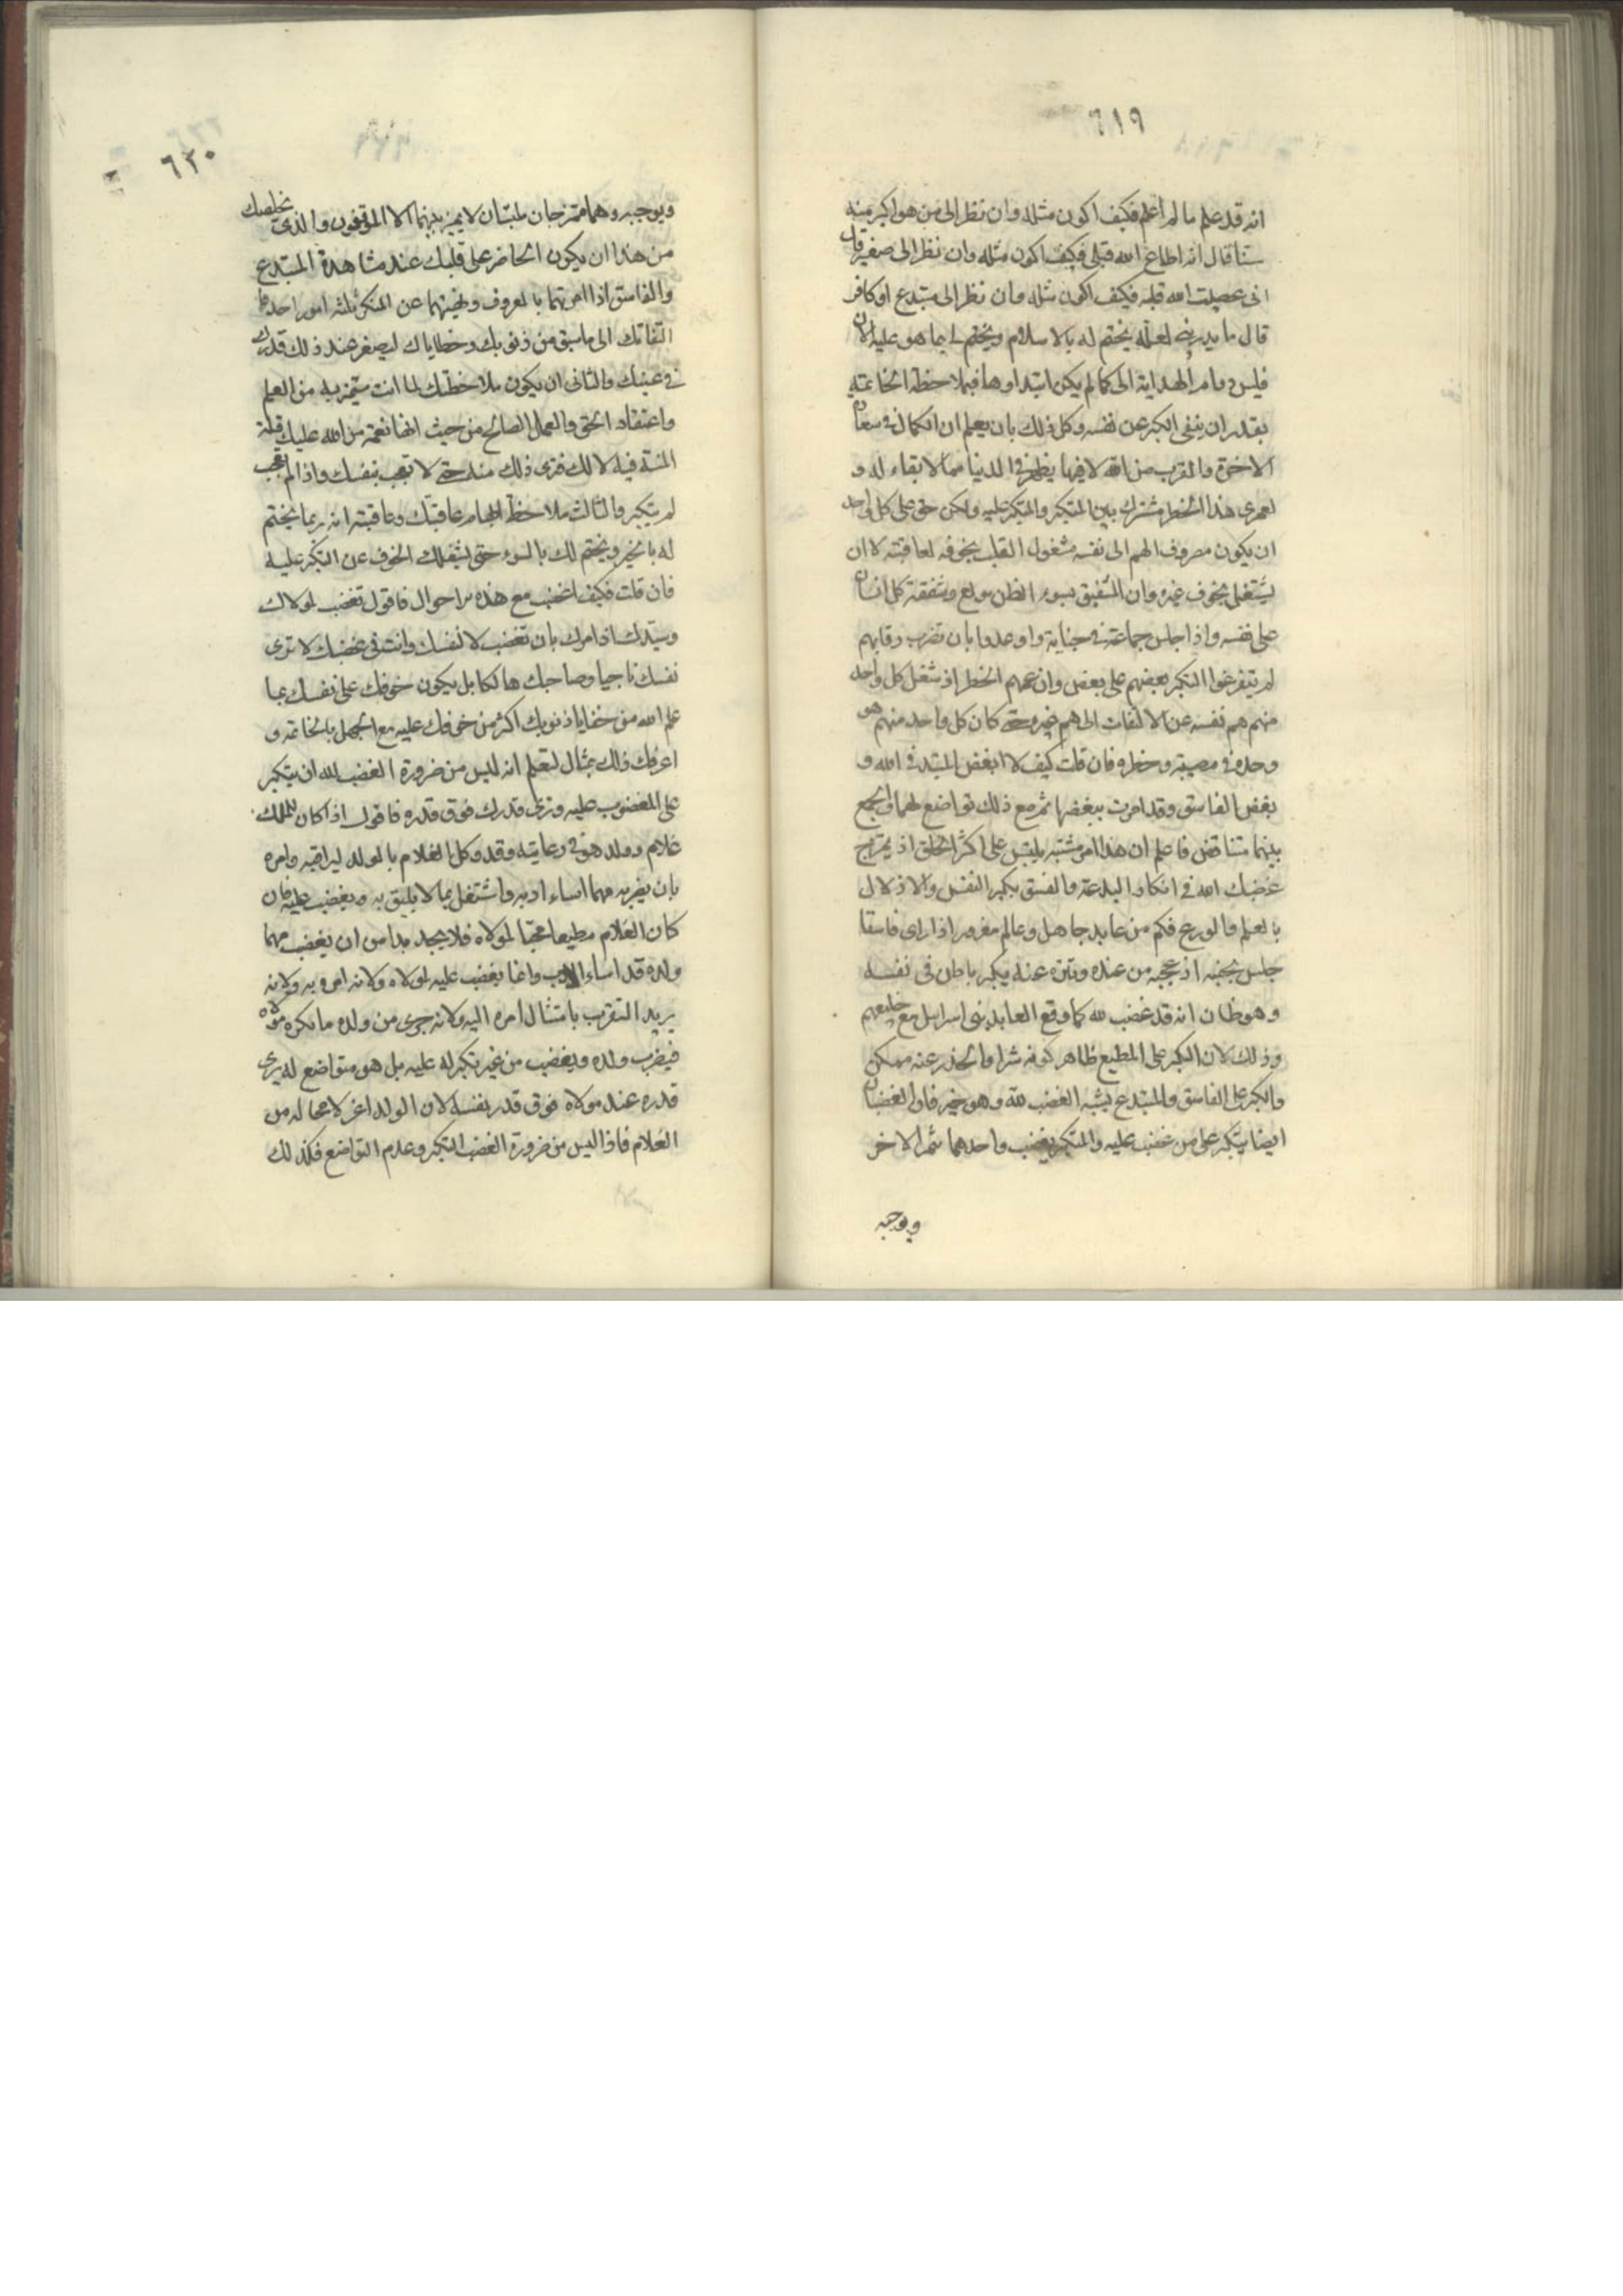 ٦١٩
انه قد علم ما لم اعلم فكيف اكون مثله وان نظر الى من هو اكبر منه
سنا قال انه اطاع الله قبلى فكيف اكون مثله وان نظر الى صغير قال
انى عصيت الله قبله فكيف اكون مثله وان نظر الى مبتدع او كافر
قال ما يدرينى لعله يختم له بالاسلام ويختم لى بما هو عليه الان
فليس دوام الهداية الى كما لم يكن ابتداوها فبملاحظة الخاتمة
يقدر ان ينفى الكبر عن نفسه وكل ذلك بان يعلم ان الكمال فى سعادة
الاخرة والقرب من الله لا فيما يظهر فى الدنيا مما لا بقاء له و
لعمرى هذا الخطر مشترك بين المتكبر والمتكبر عليه ولكن حق على كل واحد
ان يكون مصروف الهم الى نفسه مشغول القلب بخوفه لعاقبته لا ان
يشتغل بخوف غيره وان الشفيق بسوء الظن مولع وشفقة كل انسان
على نفسه واذا حبس جماعة فى جناية واوعدوا بان تضرب رقابهم
لم يتفرغوا التكبر بعضهم على بعض وان عمهم الخطر اذ شغل كل واحد
منهم هم نفسه عن الالتفات الى هم غيره حتى كان كل واحد منهم هو
وحده فى مصيبته وخطره فان قلت كيف لا ابغض المبتدع فى الله و
بغض الفاسق وقد امرت ببغضها ثم مع ذلك تواضع لهما والجمع
بينهما متناقض فاعلم ان هذا امر مشتبه يلتبس على اكثر الخلق اذ يمتزج
غضبك الله فى انكار البدعة والفسق بكبر النفس والاذلال
بالعلم والورع فكم من عابد جاهل وعالم مغرور اذا راى فاسقا
جلس بجنبه ازعجه من عنده وتنزه عنه بكبر باطن فى نفسه
وهو ظان انه قد غضب لله كما وقع العابد بنى اسرايل مع خليعهم
وذلك لان الكبر على المطيع ظاهر كونه شرا والحذر عنه ممكن
والكبر على الفاسق والمبتدع يشبه الغضب لله وهو خير فان الغضبان
ايضا يتكبر على من غضب عليه والمتكبر يغضب واحدهما يثمر الاخر
ويوجبه
٦٢٠
ويوجبه وهما ممتزجان ملتبسان لا يميز بينهما الا الموفقون والذى يخلصك
من هذا ان يكون الحاضر على قلبك عند مشاهدة المبتدع
والفاسق اذا امرتهما بالمعروف ونهيتهما عن المنكر ثلثه امور احدها
التفاتك الى ما سبق من ذنوبك وخطاياك ليصغر عند ذلك قدرك
فى عينك والثانى ان يكون ملاحظتك لما انت متميز به من العلم
واعتقاد الحق والعمل الصالح من حيث انها نعمة من الله عليك فله
المنة فيه لا لك فترى ذلك منه حتى لا تعجب بنفسك واذا لم تعجب
لم يتكبر والثالث ملاحظة ابهام عاقبتك وعاقبته انه ربما يختم
له بالخير ويختم لك بالسوء حتى يشغلك الخوف عن التكبر عليه
فان قلت فكيف اغضب مع هذه الاحوال فاقول تغضب لمولاك
وسيدك اذ امرك بان تغضب لا لنفسك وانت فى غضبك لا ترى
نفسك ناجيا وصاحبك هالكا بل يكون خوفك على نفسك بما
علم الله من خفايا ذنوبك اكثر من خوفك عليه مع الجهل بالخاتمه و
اعرفك ذلك بمثال لتعلم انه ليس من ضرورة الغضب لله ان يتكبر
على المغضوب عليه وترى قدرك فوق قدره فاقول اذا كان للملك
غلام وولد هو فى رعايته وقد وكل الغلام بالولد ليراقبه وامره
بان يضربه مهما اساء ادبه واشتغل بما لا يليق به ويغضب عليه فان
كان الغلام مطيعا محبا لمولاه فلا يجد بدا من ان يغضب مهما
ولده قد اساء الادب وانما يغضب عليه لمولاه ولانه امره به ولانه
يريد التقرب بامتثال امره اليه ولانه جرى من ولده ما يكره مولاه
فيضرب ولده ويغضب من غير تكبر له عليه بل هو متواضع له يرى
قدره عند مولاه فوق قدر نفسه لان الولد اعز لا محاله من
الغلام فاذا ليس من ضرورة الغضب التكبر وعدم التواضع فكذلك